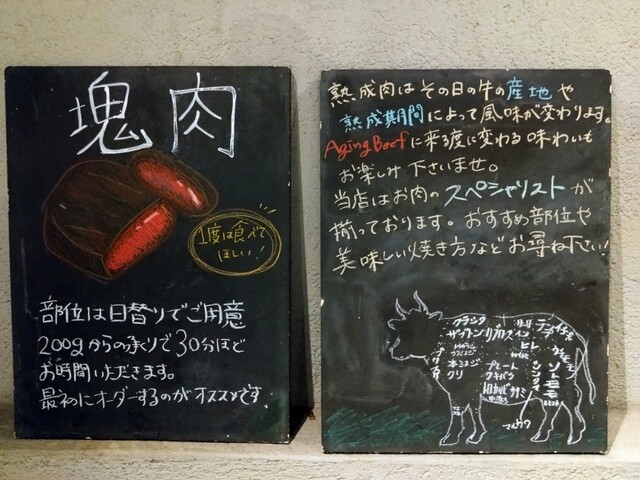 塊肉
1度は食べて
ほしい!
部位は日替りでご用意
200gからの承りで30分ほど
お時間いただきます。
最初にオーダーするのがオススメです
熟成肉はその日の牛の産地や
熟成期間によって風味が変わります。
Aging Beefに来る度に変わる味わいも
お楽しみ下さいませ。
当店はお肉のスペシャリストが
揃っております。おすすめ部位や
美味しい焼き方などお尋ね下さい!
クラシタ
ザブトン
リブロース
サーロイン
ヒレ
本ミスジ
クリ
プレート
ウチバラ
カイノミ
ササミ
シンシン
ソトモモ
マルカワ